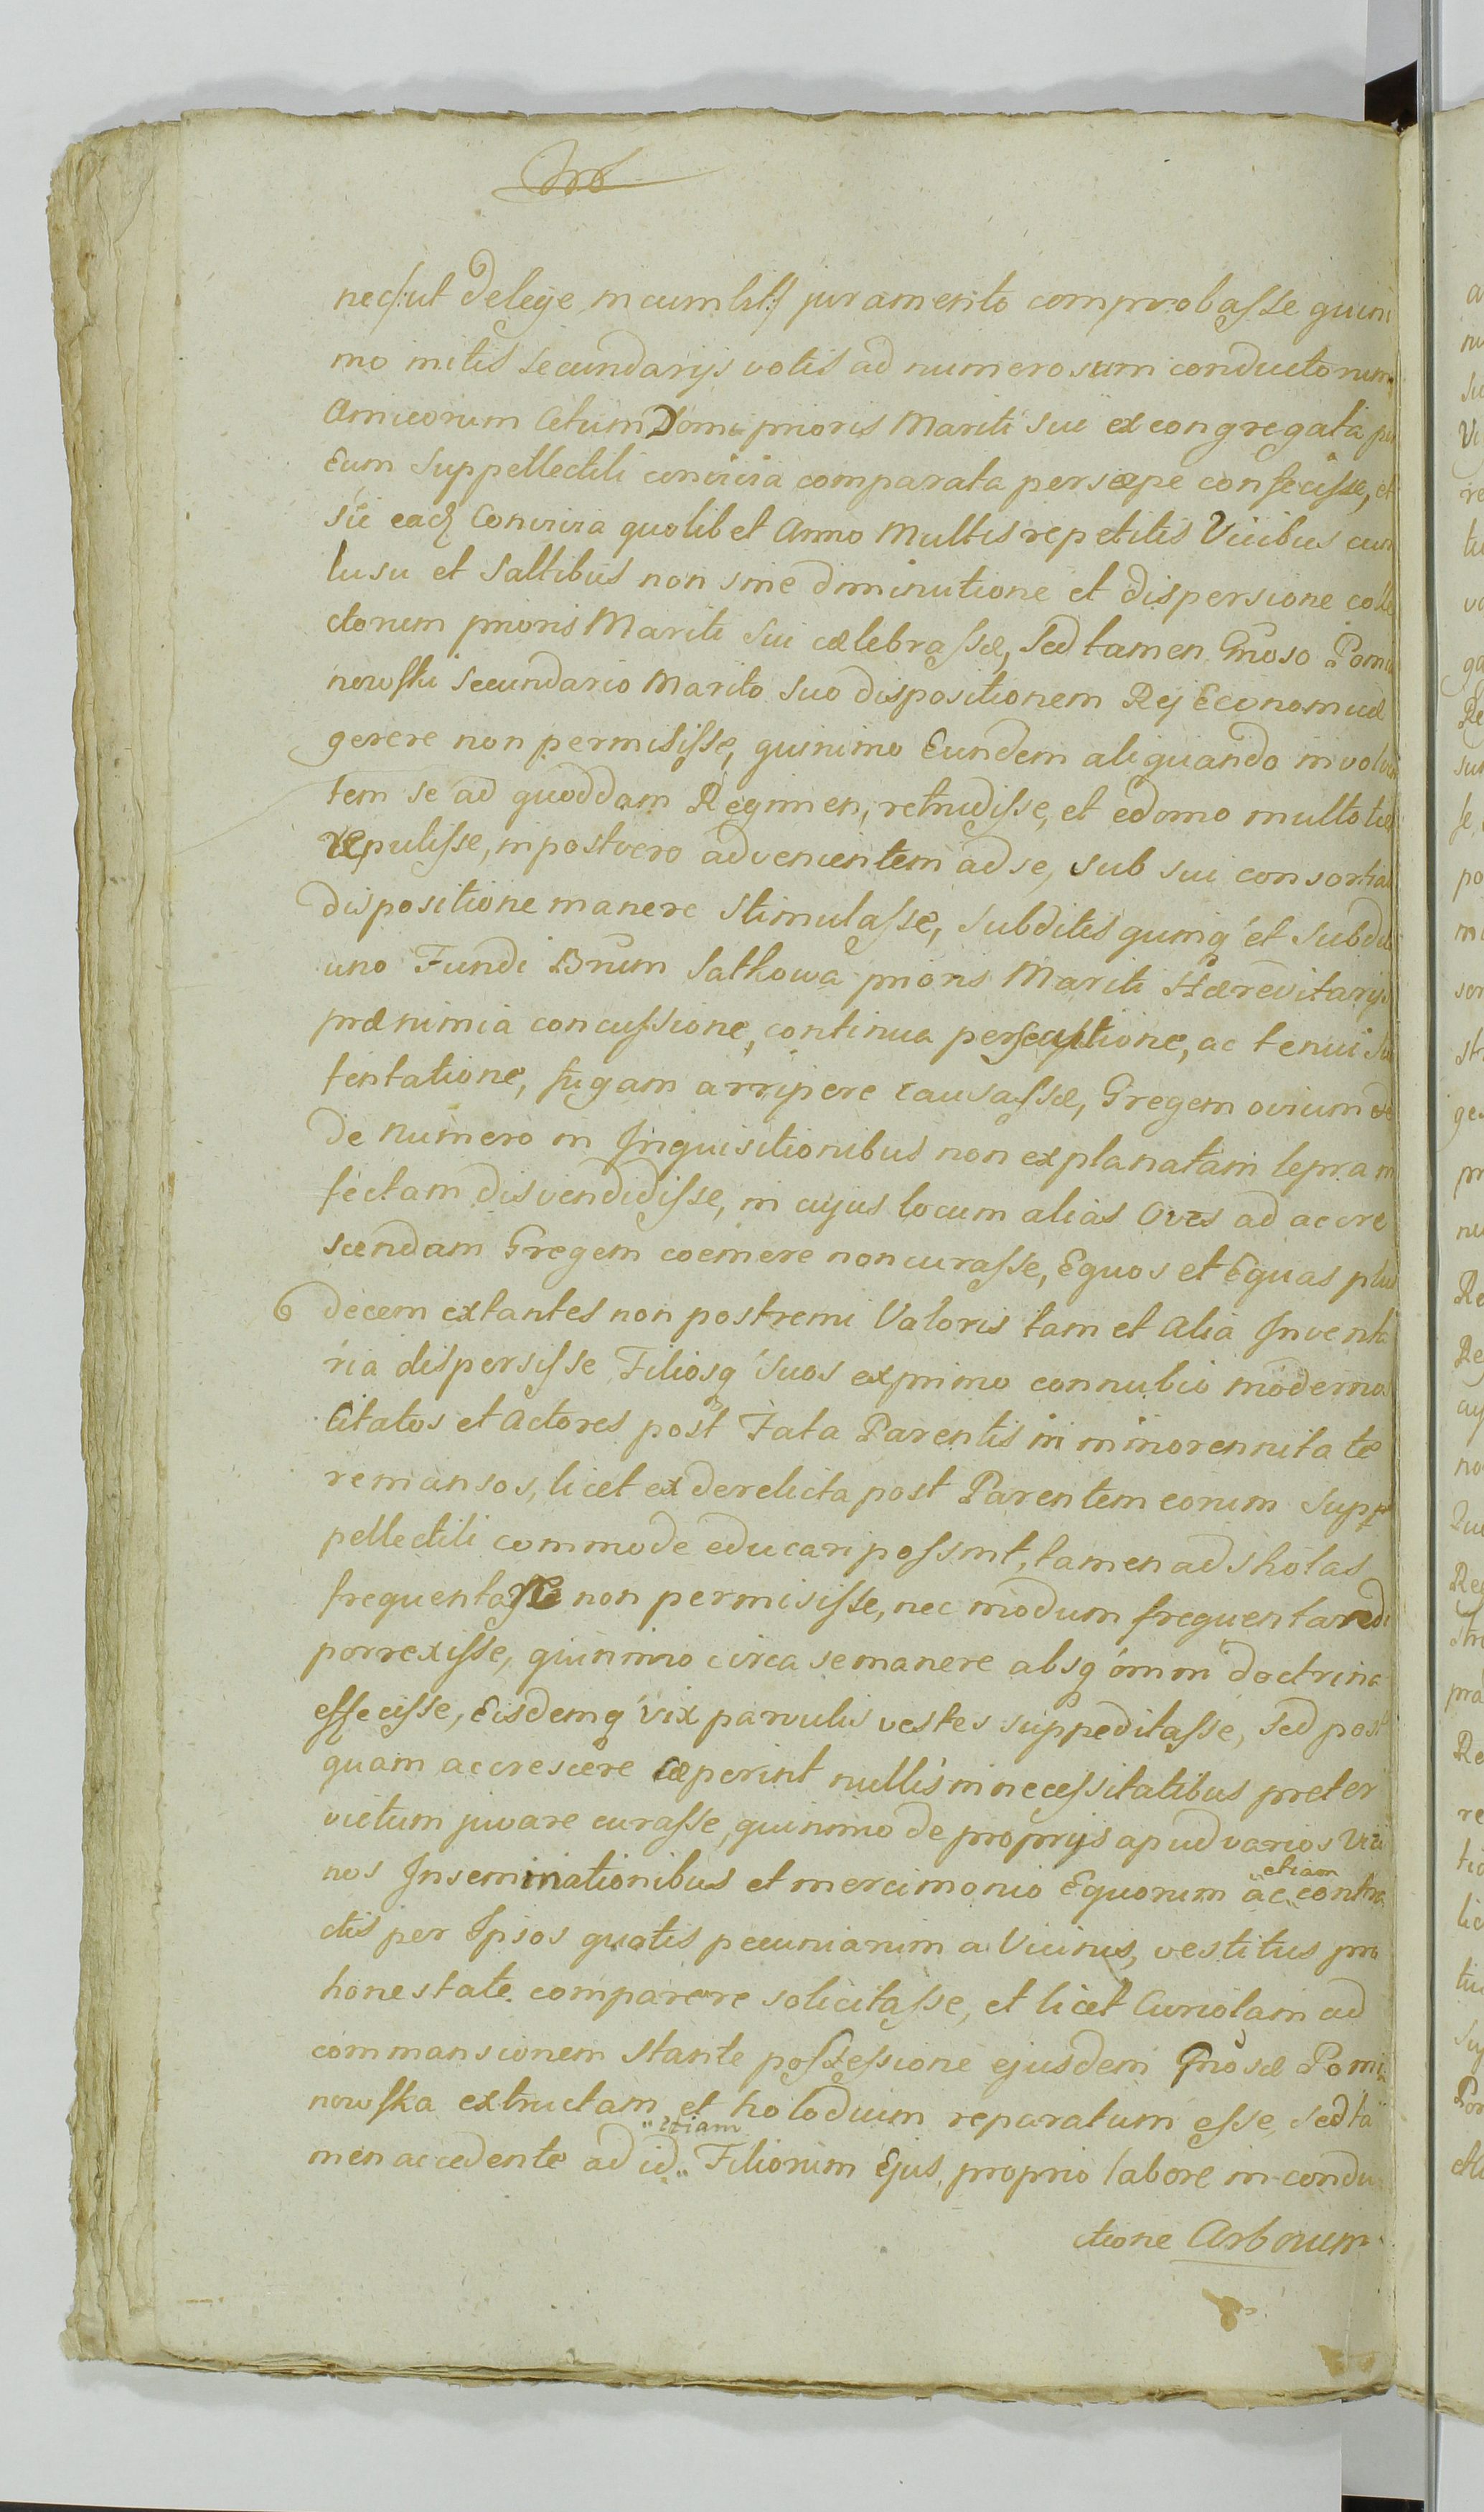 nec /:ut de lege incumbit:/ juramento comprobasse quini
mo initis secundarijs votis ad numerosum conductorum
Amicorum Cetum Domi prioris Mariti sui ex congregata per
Eum Suppellectili convivia comparata persæpe confecisse, et
sic eadq Convivia quolibet Anno Multis repetitis Vicibus cum
lusu et Saltibus non sine diminutione et dispersione colle
ctorum prioris Mariti sui cælebrassæ, sed tamen Gnoso Pomia
nowski Secundario Marito suo dispositionem Rej Economicæ
gerere non permisisse, quinimo Eundem aliquando involven
tem se ad quoddam Regimen, retrudisse, et e domo multoties
repulisse, in post vero advenientem ad se, sub sui consortiali
dispositione manere stimulasse, subditis quinq et subdit
uno Fundi Brum Satkowa prioris Mariti Hæreditarijs
præ nimia concussione, continua persecutione, ac tenui su
tentatione, fugam arripere causassæ, Gregem ovium
de Numero in Inquisitionibus non explanatam lepra in
fectam disvendidisse, in cujus locum alias Oves ad accre
scendam Gregem coemere non curasse, Equos et Equas plus
6 decem extantes non postremi Valoris tam et Alia Inventa
ria dispersisse Filiosq suos ex primo connubio modernos
Citatos et Actores post Fata Parentis in minorennitate
remansos, licet ex derelicta post Parentem eorum Sup
pellectili commode educari possint, tamen ad sholas
frequentasse non permisisse, nec modum frequentandi
porrexisse, quinimo circa se manere absq omni doctrina
effecisse, Eisdemq vix parvulis vestes suppeditasse, sed post
quam accrescere cæperint nullis in necessitatibus preter
victum juvare curasse, quinimo de proprijs apud varios Vici
nos Inseminationibus et mercimonio Equorum ac etiam contra
ctis per Ipsos quotis pecuniarum a Vicinis, vestitus pro
honestate comparere solicitasse, et licet Curiolam ad
commansionem stante possessione ejusdem Gnosæ Pomia
nowska extructam et holodium reparatum esse, sed ta
men accedente ad id etiam Filiorum Ejus proprio labore in condu
ctione Arborum